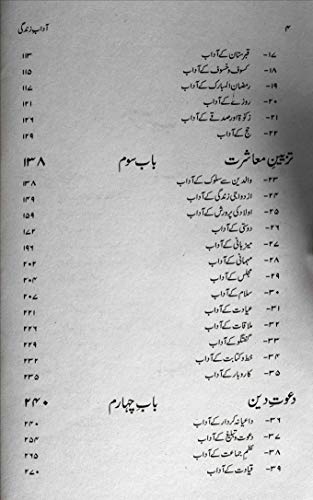 ۴ آدابِ زندگی
۱۷- قبرستان کے آداب ۱۱۳
۱۸- کسوف و خسوف کے آداب ۱۱۵
۱۹- رمضان المبارک کے آداب ۱۱۷
۲۰- روزے کے آداب ۱۲۱
۲۱- زکوٰۃ اور صدقے کے آداب ۱۲۶
۲۲- حج کے آداب ۱۲۹
تزئینِ معاشرت باب سوم ۱۳۸
۲۳- والدین سے سلوک کے آداب ۱۳۸
۲۴- ازدواجی زندگی کے آداب ۱۴۹
۲۵- اولاد کی پرورش کے آداب ۱۵۹
۲۶- دوستی کے آداب ۱۷۲
۲۷- میزبانی کے آداب ۱۹۶
۲۸- مہمانی کے آداب ۲۰۲
۲۹- مجلس کے آداب ۲۰۴
۳۰- سلام کے آداب ۲۰۷
۳۱- عیادت کے آداب ۲۲۱
۳۲- ملاقات کے آداب ۲۲۶
۳۳- گفتگو کے آداب ۲۲۹
۳۴- خط و کتابت کے آداب ۲۳۲
۳۵- کاروبار کے آداب ۲۳۵
دعوتِ دین باب چہارم ۲۴۰
۳۶- داعیانہ کردار کے آداب ۲۴۰
۳۷- دعوت و تبلیغ کے آداب ۲۵۴
۳۸- نظم جماعت کے آداب ۲۶۵
۳۹- قیادت کے آداب ۲۷۰